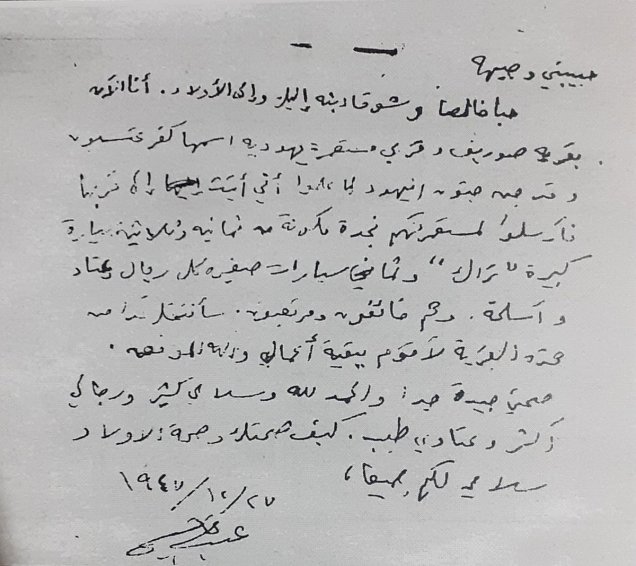 حبيبتي وجيهة
حبا خالصا وشوقا ابثه إليك وإلى الأولاد. أنا الآن
بقرية صوريف وقربي مستعمرة يهودية اسمها كفر عتسيون
وقد جن جنون اليهود لما علموا أني أتيت إلى قربها
فأرسلوا لمستعمرتهم نجدة مكونة من ثمانيه وثلاثين سيارة
كبيرة "تراك" وثماني سيارات صغيره بكل رجال وعتاد
وأسلحة. وهم خائفون ومرتعبون. سأنتقل غدا من
هذه القرية لأقوم ببقية أعمالي والله الموفق.
صحتي جيدة جدا والحمد لله وسلاحي كثير ورجالي
أكثر وعتادي طيب. كيف صحتك وصحة الاولاد
سلامي لكم جميعا،
١٩٤٧/١٢/٢٧